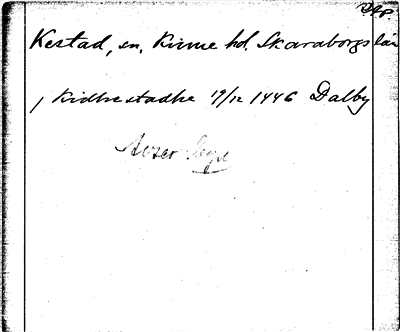 Kestad, sn, Kinne hd. Skaraborgs län
, Kidhestadhe 19/12 1446 Dalby